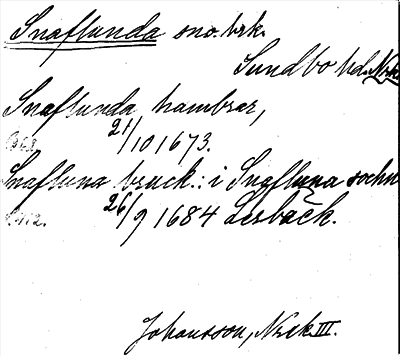 Snaflunda sno. brk.
Sundbo hd. Nrk.
Snaflunda hambrar,
21/10 1673.
Snafluna bruck: i Snafluna sochn
26/9 1684 Lerbäck.
Johansson, Nrk III.